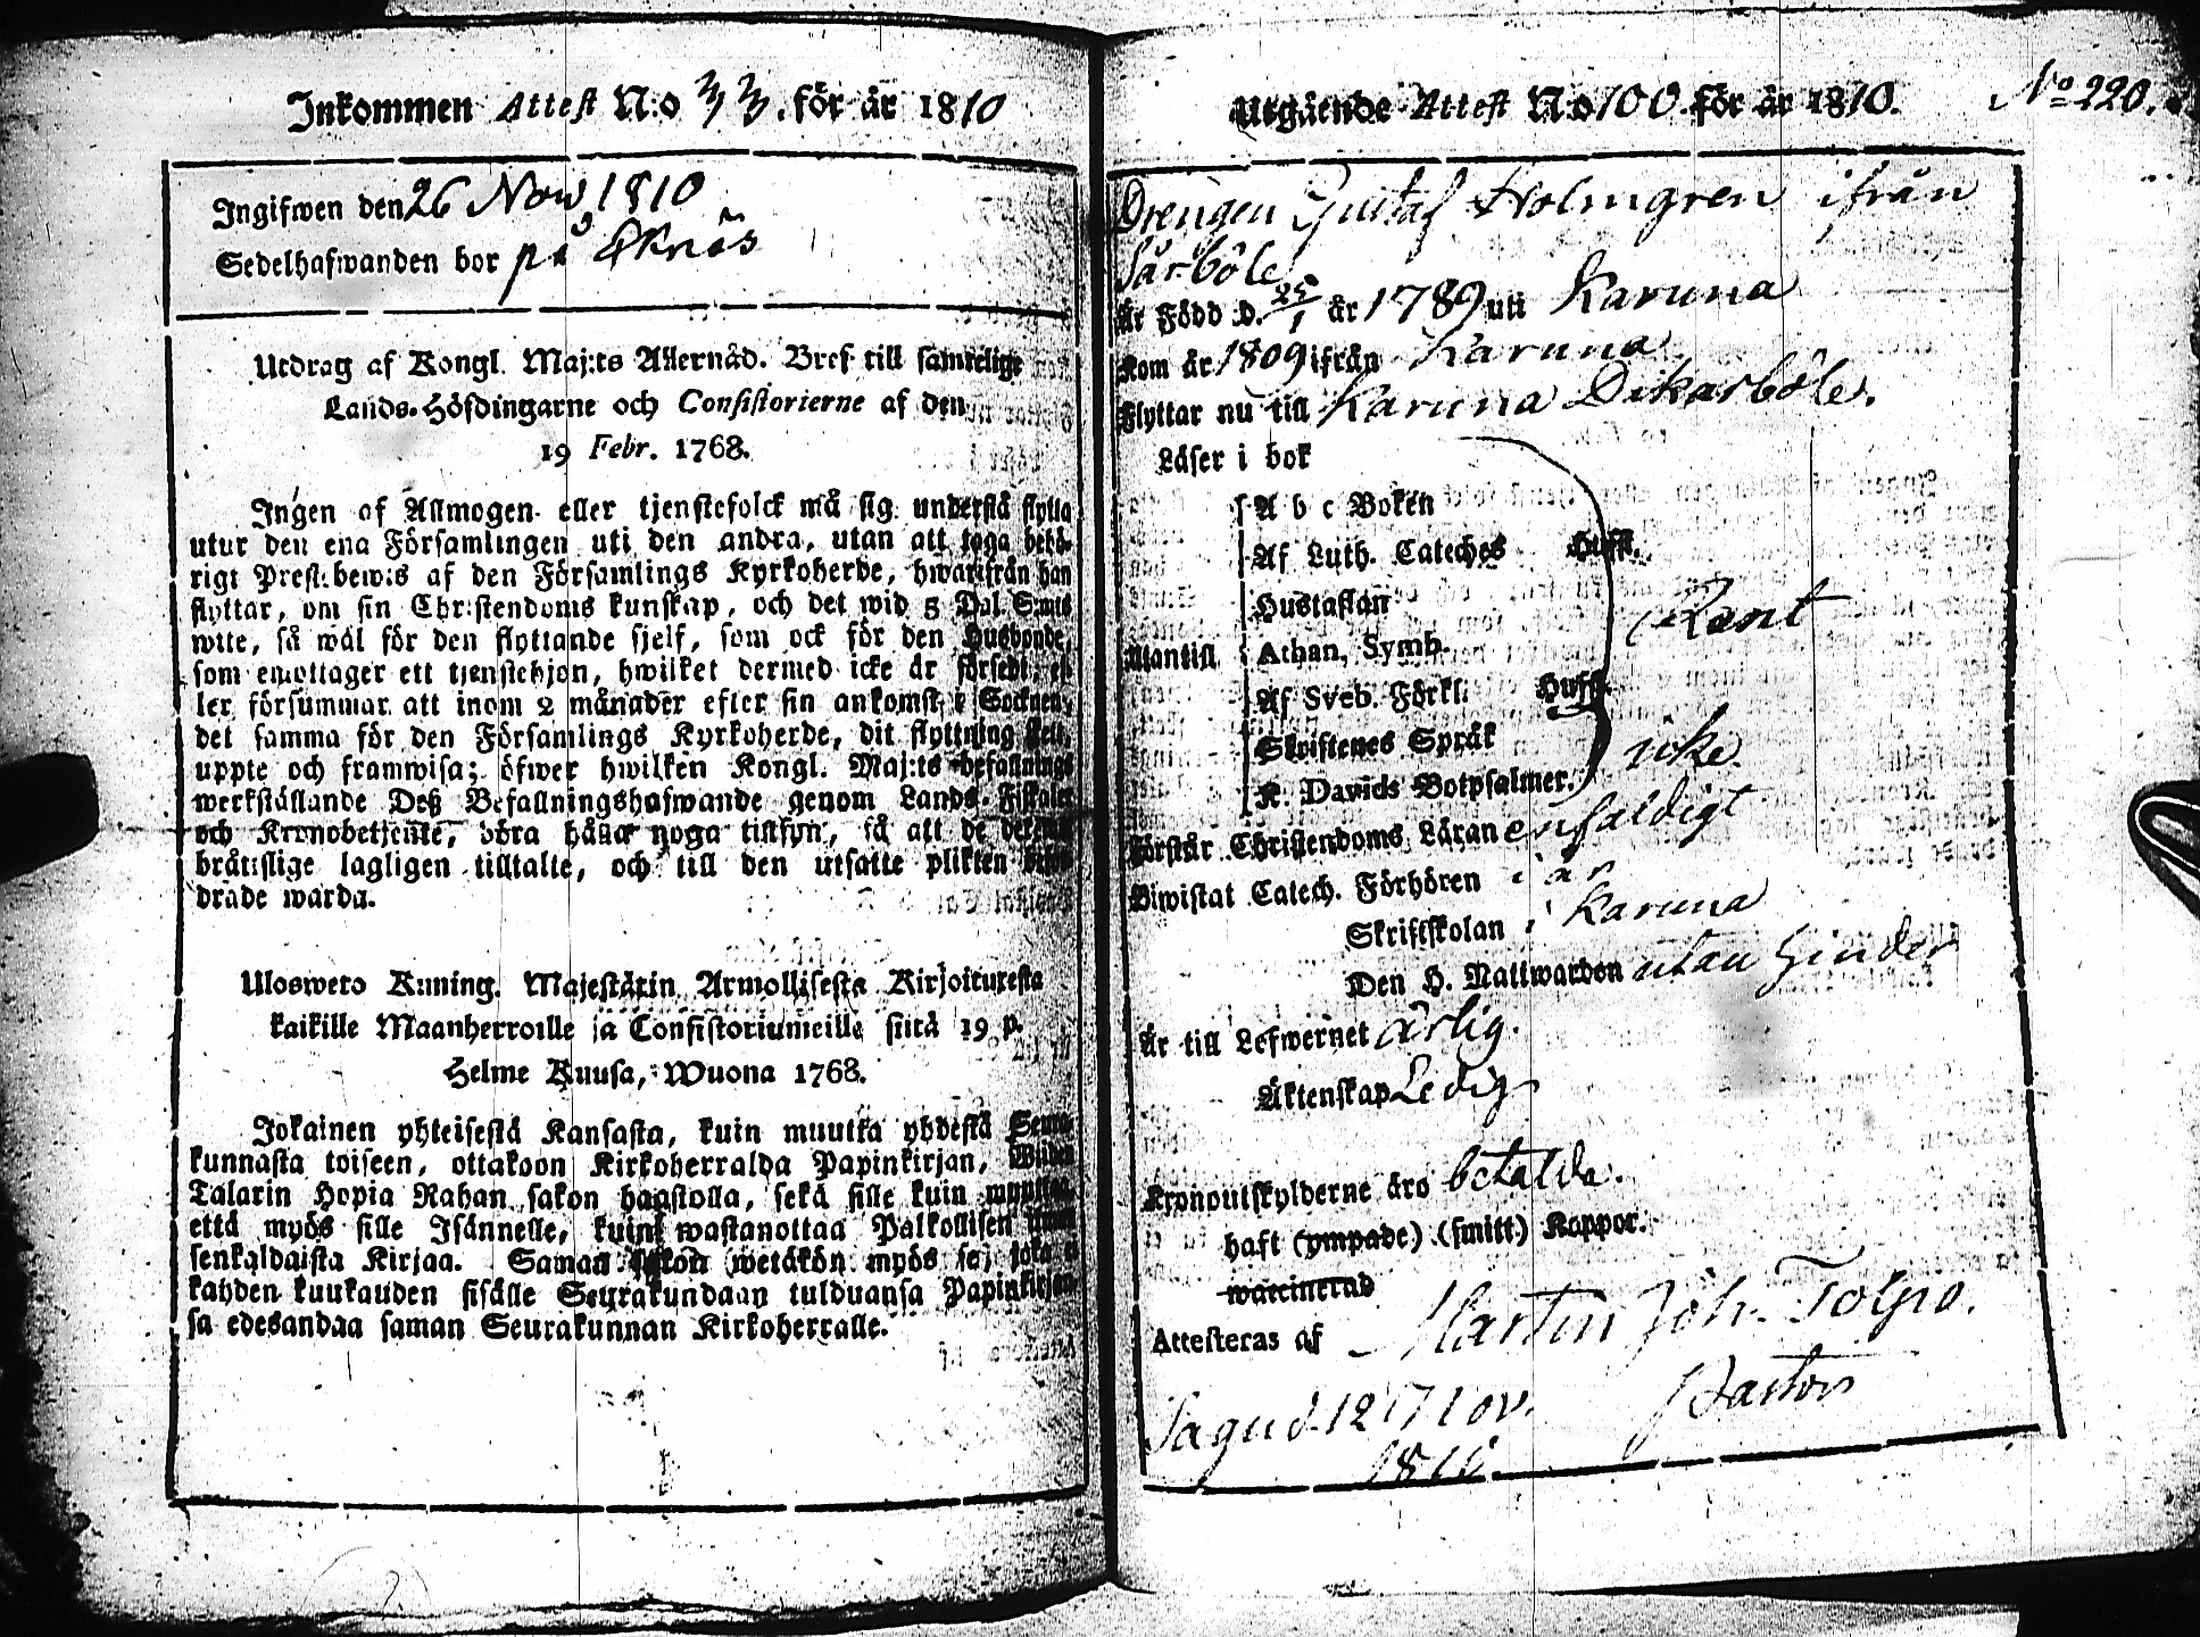 Inkommen Attest N:o 33. för år 1810
Ingifwen den 26 Nov 1810
Sedelhafwanden bor på Eknäs
Utdrag af Kongl. Maj:ts Allernåd. Bref till samtelige
Lands-Höfdingarne och Consistorierne af den
19 Febr. 1768.
Ingen af Allmogen eller tjenstefolck må sig understå flytta
utur den ena Församlingen uti den andra, utan att taga behö-
rigt Prestebewis af den Församlings Kyrkoherde, hwarifrån han
flyttar, om sin Christendoms kunskap, och det wid 5 Dal. S:mts
wite, så wäl för den flyttande sjelf, som ock för den Husbonde,
som emottager ett tjenstehjon, hwilket dermed icke är försedt, el-
ler försummar att inom 2 månader efter sin ankomst i Socknen,
det samma för den Församlings Kyrkoherde, dit flyttning skett,
uppte och framwisa; öfwer hwilken Kongl. Maj:ts befallnings
werkställande Deß Befallningshafwande genom Lands-Fiskaler
och Kronobetjente, böra hålla noga tillsyn, så att de
bråttslige lagligen tilltalte, och till den utsatte plikten
drade warda.
Ulosweto Kuning. Majestätin Armollisesta Kirjoituxesta
kaikille Maanherroille ja Consistoriumeille siitä 19 p.
Helme Kuusa, Wuona 1768.
Jokainen yhteisestä Kansasta, kuin muutta yhdestä Seura-
kunnasta toiseen, ottakoon Kirkoherralda Papinkirjan, Wiiden
Talarin Hopia Rahan sakon haastolla, sekä sille kuin muuttaa,
että myös sille Isännelle, kuin wastanottaa Palkollisen ilman
senkaldaista Kirjaa. Saman sakon wetäkön myös se, joka ei
kahden kuukauden sisälle Seurakundaan tulduansa Papinkirjan-
sa edesandaa saman Seurakunnan Kirkoherralle.
Utgående Attest N:o 100 för år 1810. No 220.
Drengen Gustaf Holmgren ifrån
Särböle
Är Född d. 25/1 år 1789 uti Karuna
Kom år 1809 ifrån Karuna
Flyttar nu till Karuna Dikarböle.
Läser i bok
A b c Boken
Af Luth. Cateches Hufft.
Hustaflan
Rent
Utantill Athan. Symb.
Af Sveb. Förkl. Hufft.
Skriftenes Språk
icke
K. Davids Botpsalmer.
Förstår Christendoms Läran enfaldigt
Biwistat Catech. Förhören i år
Skriftskolan i Karuna
Den H. Nattwarden utan hinder
Är till Lefwernet ärlig.
Äktenskap Ledig
Kronoutskylderne äro betalda.
haft (ympade) (smitt) Koppor.
waccinerad
Attesteras af Martin Joh. Tolpo.
Pastor
Sagu d. 12 Nov.
1810